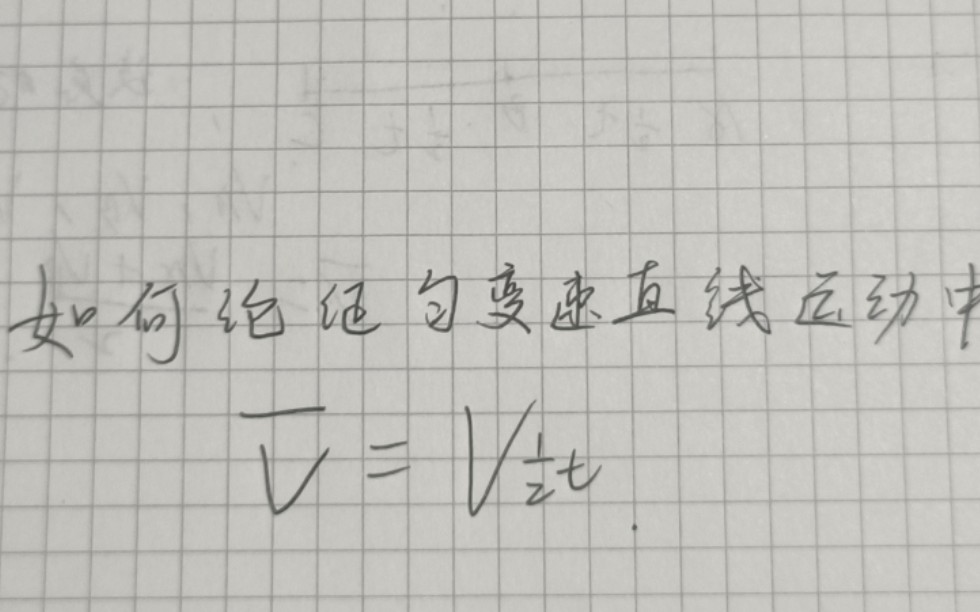 如何论证匀变速直线运动中
V̅ = V½t.